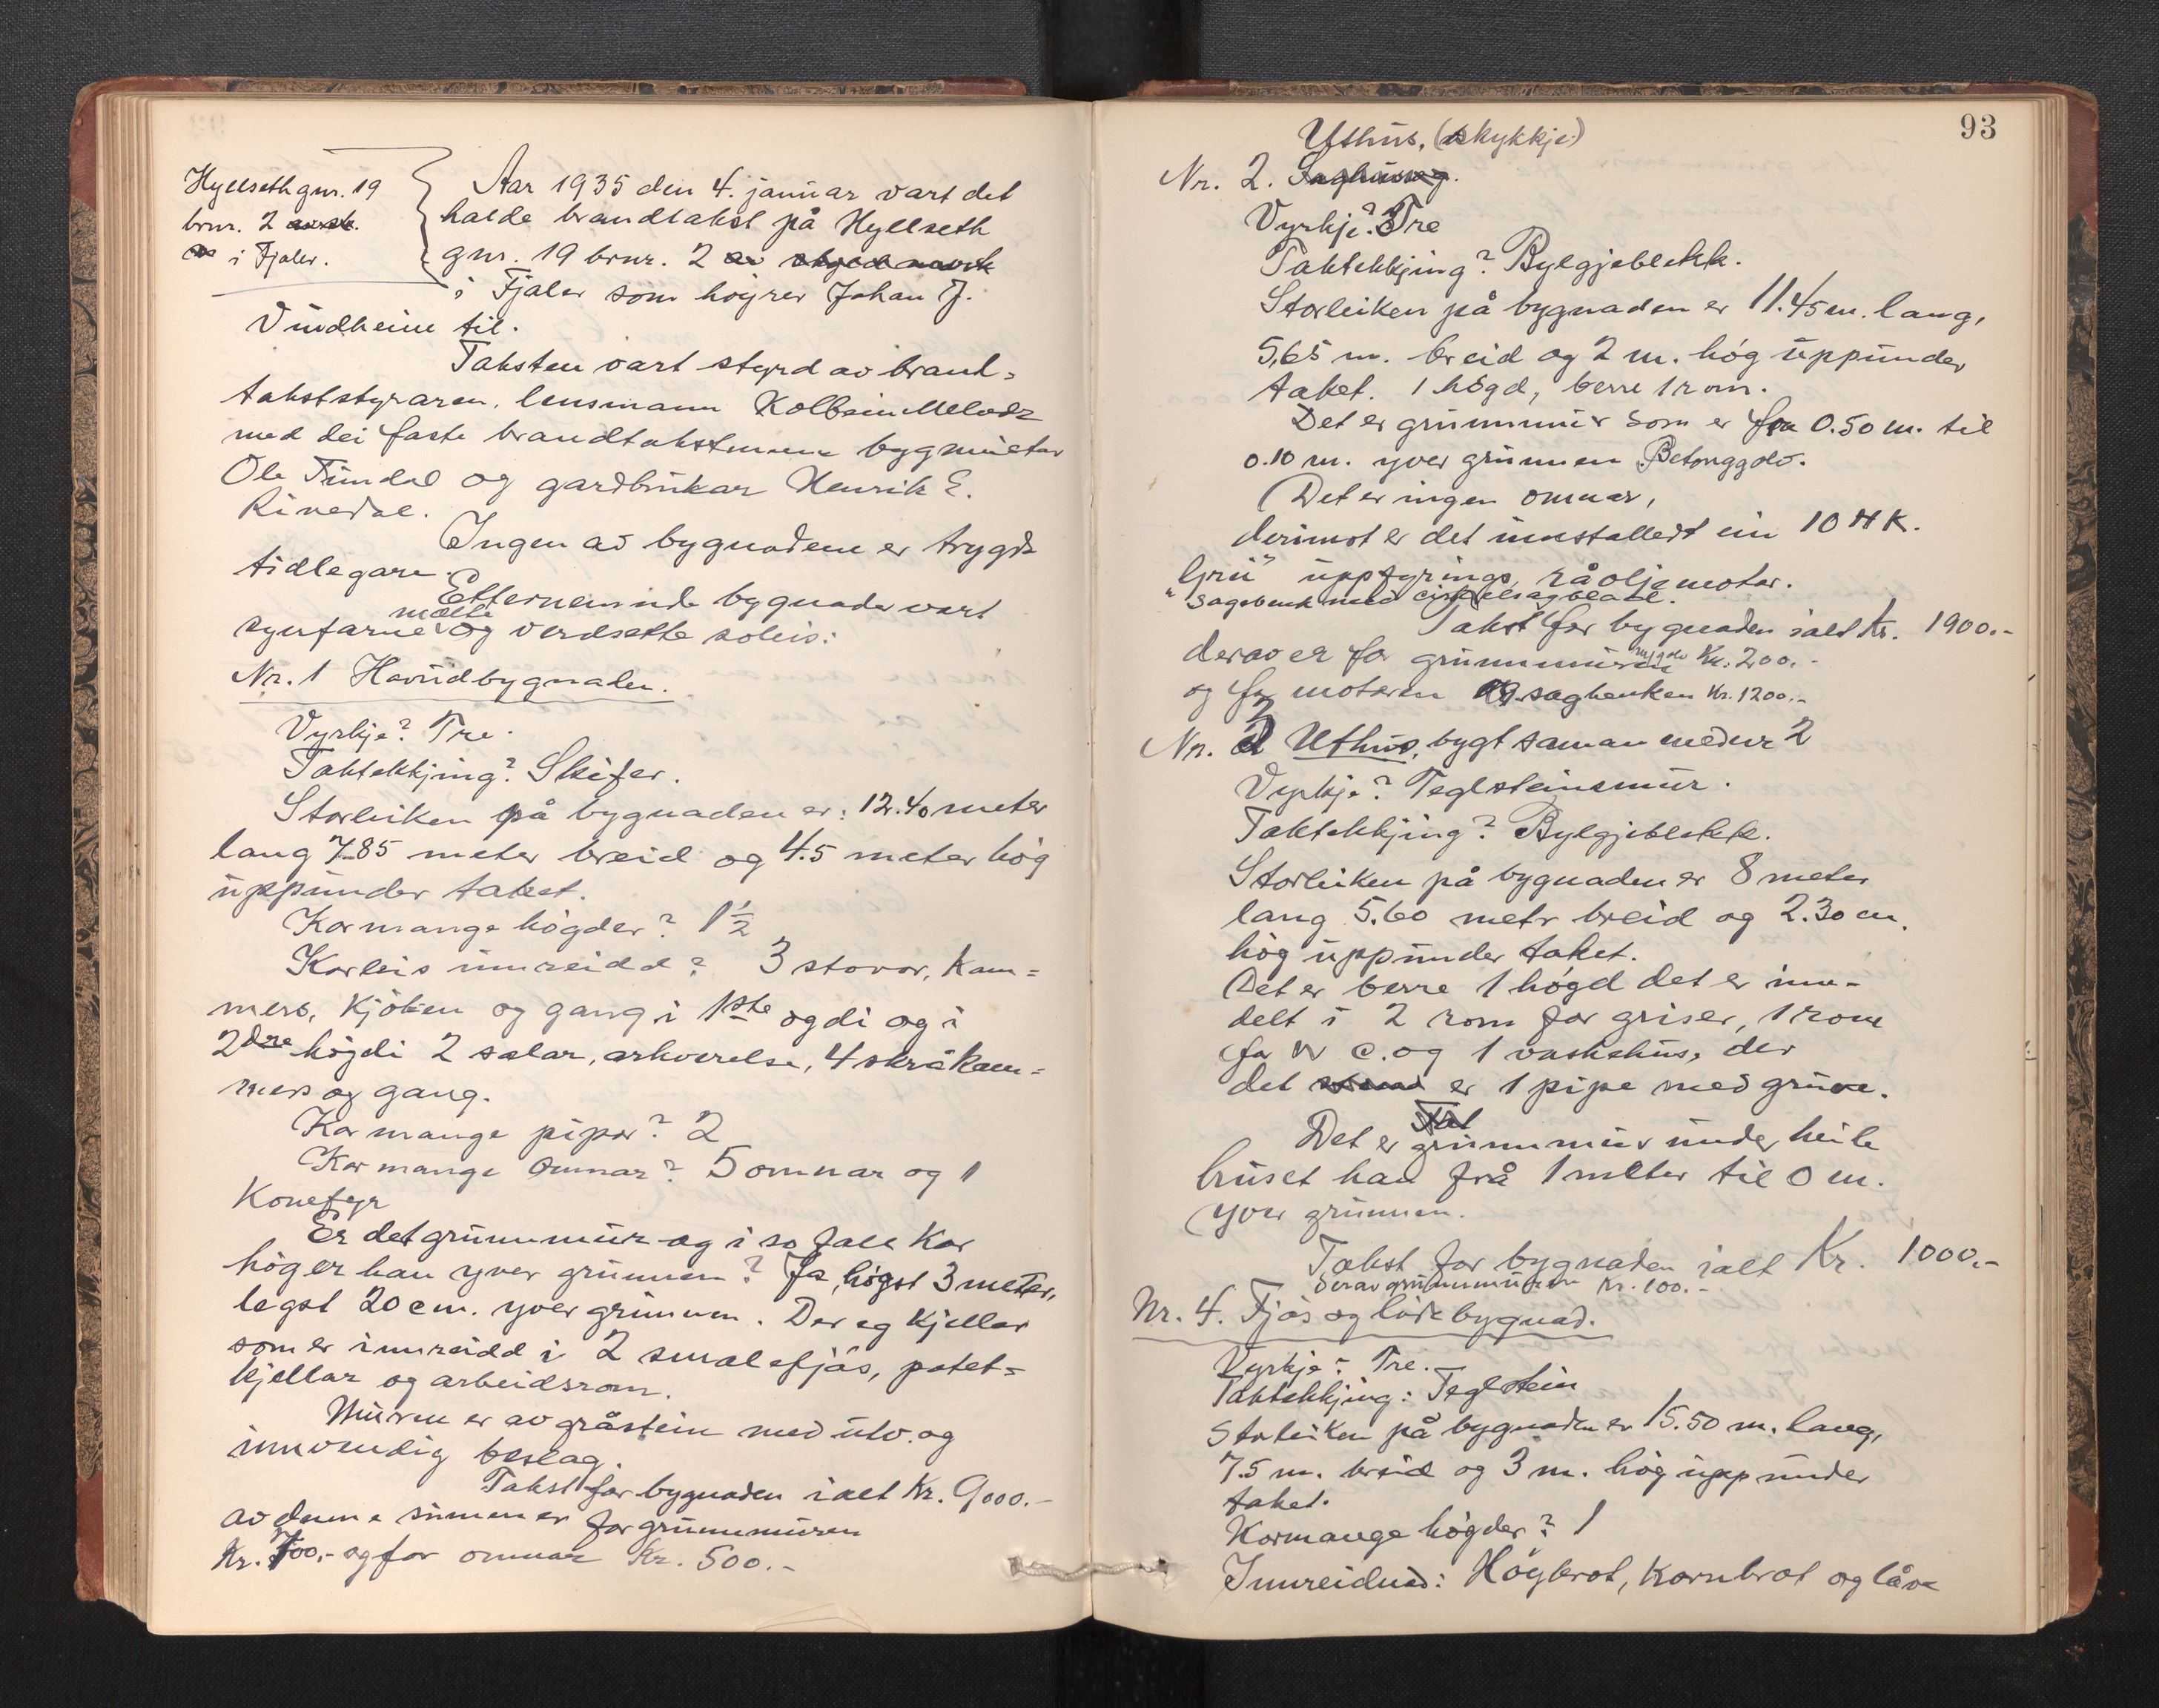 Hyllseth gnr. 19
brnr. 2
i Fjaler.
Aar 1935 den 4. januar vart det
halde brandtakst på Hyllseth
gnr. 19 brnr. 2 av
i Fjaler som höyrer Johan J.
Vindheim til.
Taksten vart styrd av brand-
takststyraren, lensmann Kolbein
med dei faste brandtakstmenn bygmeister
Ole Tundal og gardbrukar Henrik E.
Rivedal.
Ingen av bygnadene er trygda
tidlegare.
Etternemnde bygnader vart
synfarne, mælte og verdsette soleis:
Nr. 1 Hovudbygnaden.
Vyrkje? Tre.
Taktekkjing? Skifer.
Storleiken på bygnaden er: 12.40 meter
lang 7.85 meter breid og 4.5 meter hög
uppunder taket.
Kormange högder? 1½
Korleis innreidd? 3 stovor, kam-
mers, kjöken og gang i 1ste ogdi og i
2dre högdi 2 salar, arkverelse, 4 skråkam-
mers og gang.
Kor mange pipor? 2
Kor mange omnar? 5 omnar og 1
Konefyr
Er det grunnmur og i so fall kor
hög er han yver grunnen? Ja, högst 3 meter,
lægst 20 cm. yver grunnen. Der eg kjellar
som er innreidd i 2 smalefjös, potet-
kjellar og arbeidsrom.
Muren er av gråstein med utv. og
innvendig beslag.
Takst for bygnaden ialt Kr. 9000.-
av denne summen er for grunnmuren
Kr. 700,- og for omnar Kr. 500.-
93
Uthus, (skykkje)
Nr. 2. Saghusveg.
Vyrkje? Tre
Taktekkjing? Bylgjeblekk.
Storleiken på bygnaden er 11.45 m. lang,
5,65 m. breid og 2 m. hög uppunder
taket. 1 högd, berre 1 rom.
Det er grunnmur som er fra 0.50 m. til
0.10 m. yver grunnen Betonggolv.
Det er ingen omnar,
derimot er det innstalledt ein 10 HK.
"Grü" uppfyrings, råoljemotor.
"Sagbenk med cirkelsagblade.
Takst for bygnaden ialt Kr. 1900.-
derav er for grunnmuren m/golv Kr. 200.-
og for motoren og sagbenken Kr. 1200.-
Nr. 3 Uthus, bygt saman med nr 2
Vyrkje? Teglsteinsmur.
Taktekkjing? Bylgjeblekk.
Storleiken på bygnaden er 8 meter
lang 5.60 metr breid og 2.30 m.
hög uppunder taket.
Det er berre 1 högd det er inn-
delt i 2 rom for griser, 1 rom
for W C. og 1 vaskehus, der
det er 1 pipe med gruve.
Det er grunnmur under heile
huset han frå 1 meter til 0 m.
yver grunnen.
Takst for bygnaden ialt Kr. 1000.-
derav grunnmuren Kr. 100.-
Nr. 4. Fjös og lödebygnad.
Vyrkje: Tre.
Taktekkjing: Teglstein
Storleiken på bygnaden er 15.50 m. lang,
7.5 m. breid og 3 m. hög upp under
taket.
Kormange högder? 1
Innreidnad: Höybrot, kornbrot og låve